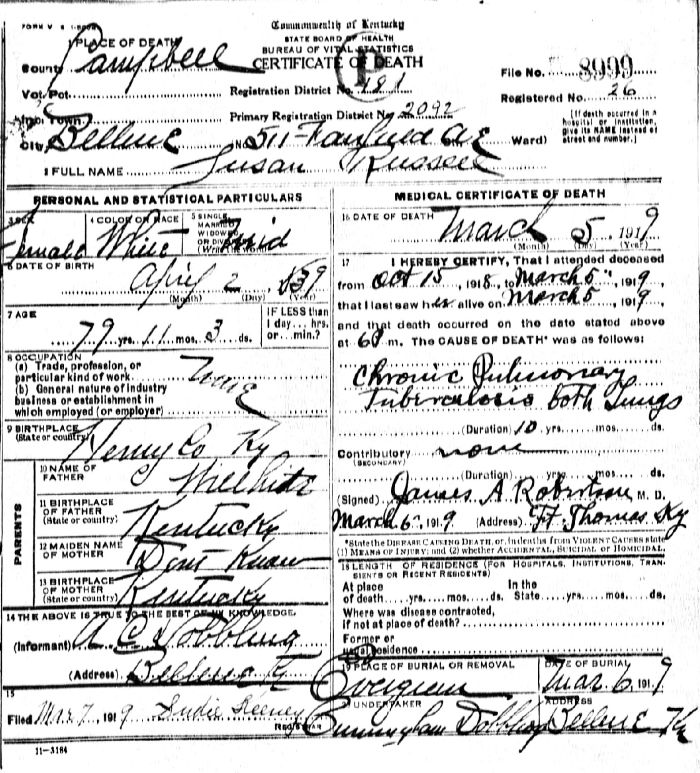 FORM V. S. 1-
Commonwealth of Kentucky
STATE BOARD OF HEALTH
BUREAU OF VITAL STATISTICS
CERTIFICATE OF DEATH
1 PLACE OF DEATH
County Campbell
File No. 8999
Vot. Pct.
Registration District No. 191
Registered No. 26
Inc. Town
Primary Registration District No. 2092
[If death occurred in a hospital or institution, give its NAME instead of street and number.]
City Bellevue 511 Fairfield Ave Ward)
2 FULL NAME Susan Russell
PERSONAL AND STATISTICAL PARTICULARS
3 SEX Female
4 COLOR OR RACE White
5 SINGLE MARRIED WIDOWED OR DIVORCED (Write the word) Wid
6 DATE OF BIRTH April 2 1839
(Month) (Day) (Year)
7 AGE 79 yrs. 11 mos. 3 ds.
IF LESS than 1 day... hrs. or... min.?
8 OCCUPATION
(a) Trade, profession, or particular kind of work None
(b) General nature of industry business or establishment in which employed (or employer)
9 BIRTHPLACE (State or country) Henry Co Ky
PARENTS
10 NAME OF FATHER
11 BIRTHPLACE OF FATHER (State or country) Kentucky
12 MAIDEN NAME OF MOTHER Dont Know
13 BIRTHPLACE OF MOTHER (State or country) Kentucky
14 THE ABOVE IS TRUE TO THE BEST OF MY KNOWLEDGE.
(Informant) A. C. Dobbling
(Address) Bellevue Ky
15
Filed Mar 7, 1919 Sudie Keeney REGISTRAR
11-3184
MEDICAL CERTIFICATE OF DEATH
16 DATE OF DEATH March 5 1919
(Month) (Day) (Year)
17 I HEREBY CERTIFY, That I attended deceased
from Oct 15, 1918, to March 5, 1919
that I last saw her alive on March 5, 1919
and that death occurred on the date stated above
at m. The CAUSE OF DEATH* was as follows:
Chronic Pulmonary
Tuberculosis both Lungs
(Duration) 10 yrs. mos. ds.
Contributory none
(SECONDARY)
(Duration) yrs. mos. ds.
(Signed) James A. Robertson M. D.
March 6, 1919 (Address) Ft. Thomas Ky
*State the DISEASE CAUSING DEATH, or, in deaths from VIOLENT CAUSES state (1) MEANS OF INJURY; and (2) whether ACCIDENTAL, SUICIDAL or HOMICIDAL.
18 LENGTH OF RESIDENCE (FOR HOSPITALS, INSTITUTIONS, TRANSIENTS OR RECENT RESIDENTS)
At place of death yrs. mos. ds. In the State yrs. mos. ds.
Where was disease contracted, if not at place of death?
Former or usual residence
19 PLACE OF BURIAL OR REMOVAL Evergreen
DATE OF BURIAL Mar. 6 1919
20 UNDERTAKER Cunningham Dobbling
ADDRESS Bellevue Ky